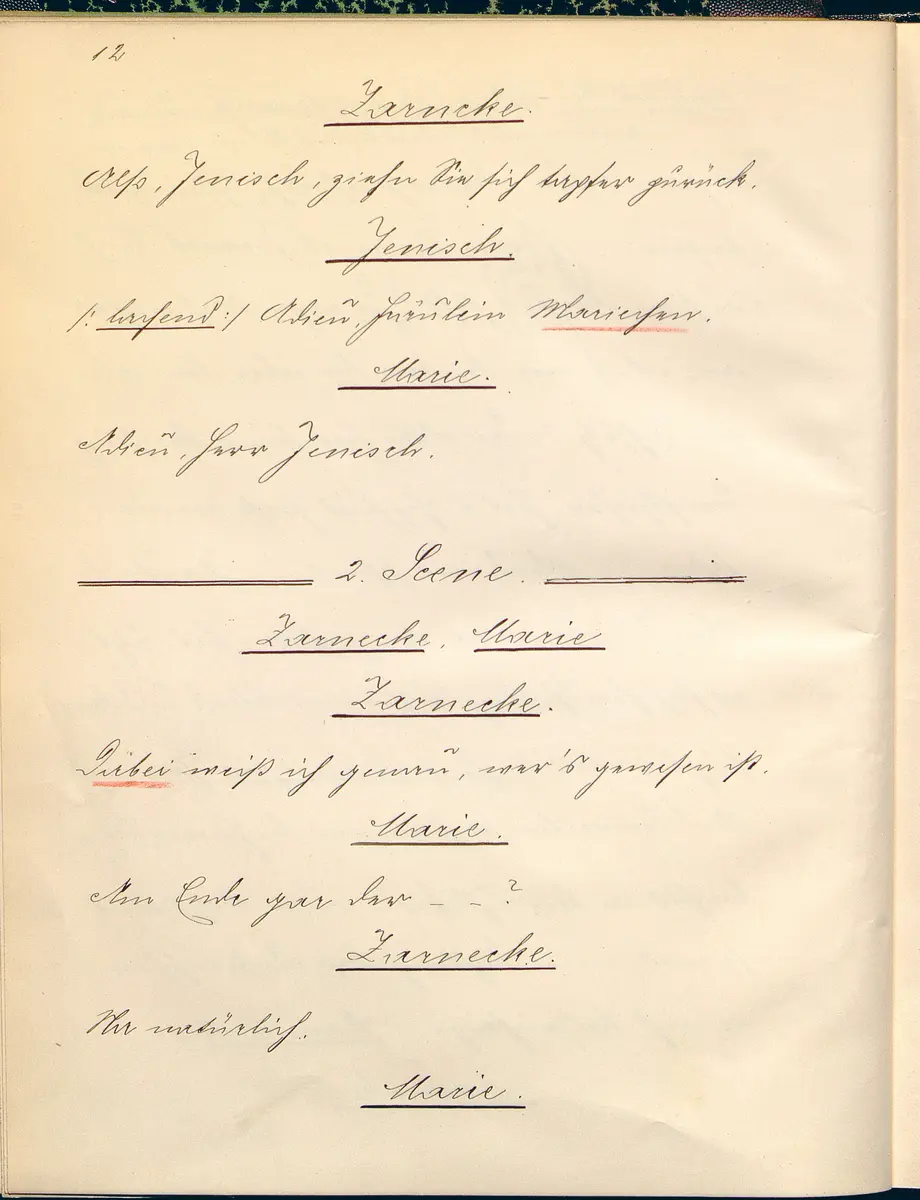 12
Zarncke.
Also, Jenisch, ziehn Sie sich tapfer zurück.
Jenisch.
/: lachend :/ Adieu, Fräulein Mariechen.
Marie.
Adieu, Herr Jenisch.
2. Scene.
Zarnecke, Marie
Zarnecke.
Dabei weiß ich genau, wer's gewesen ist.
Marie.
Am Ende gar der – – ?
Zarnecke.
Na natürlich.
Marie.